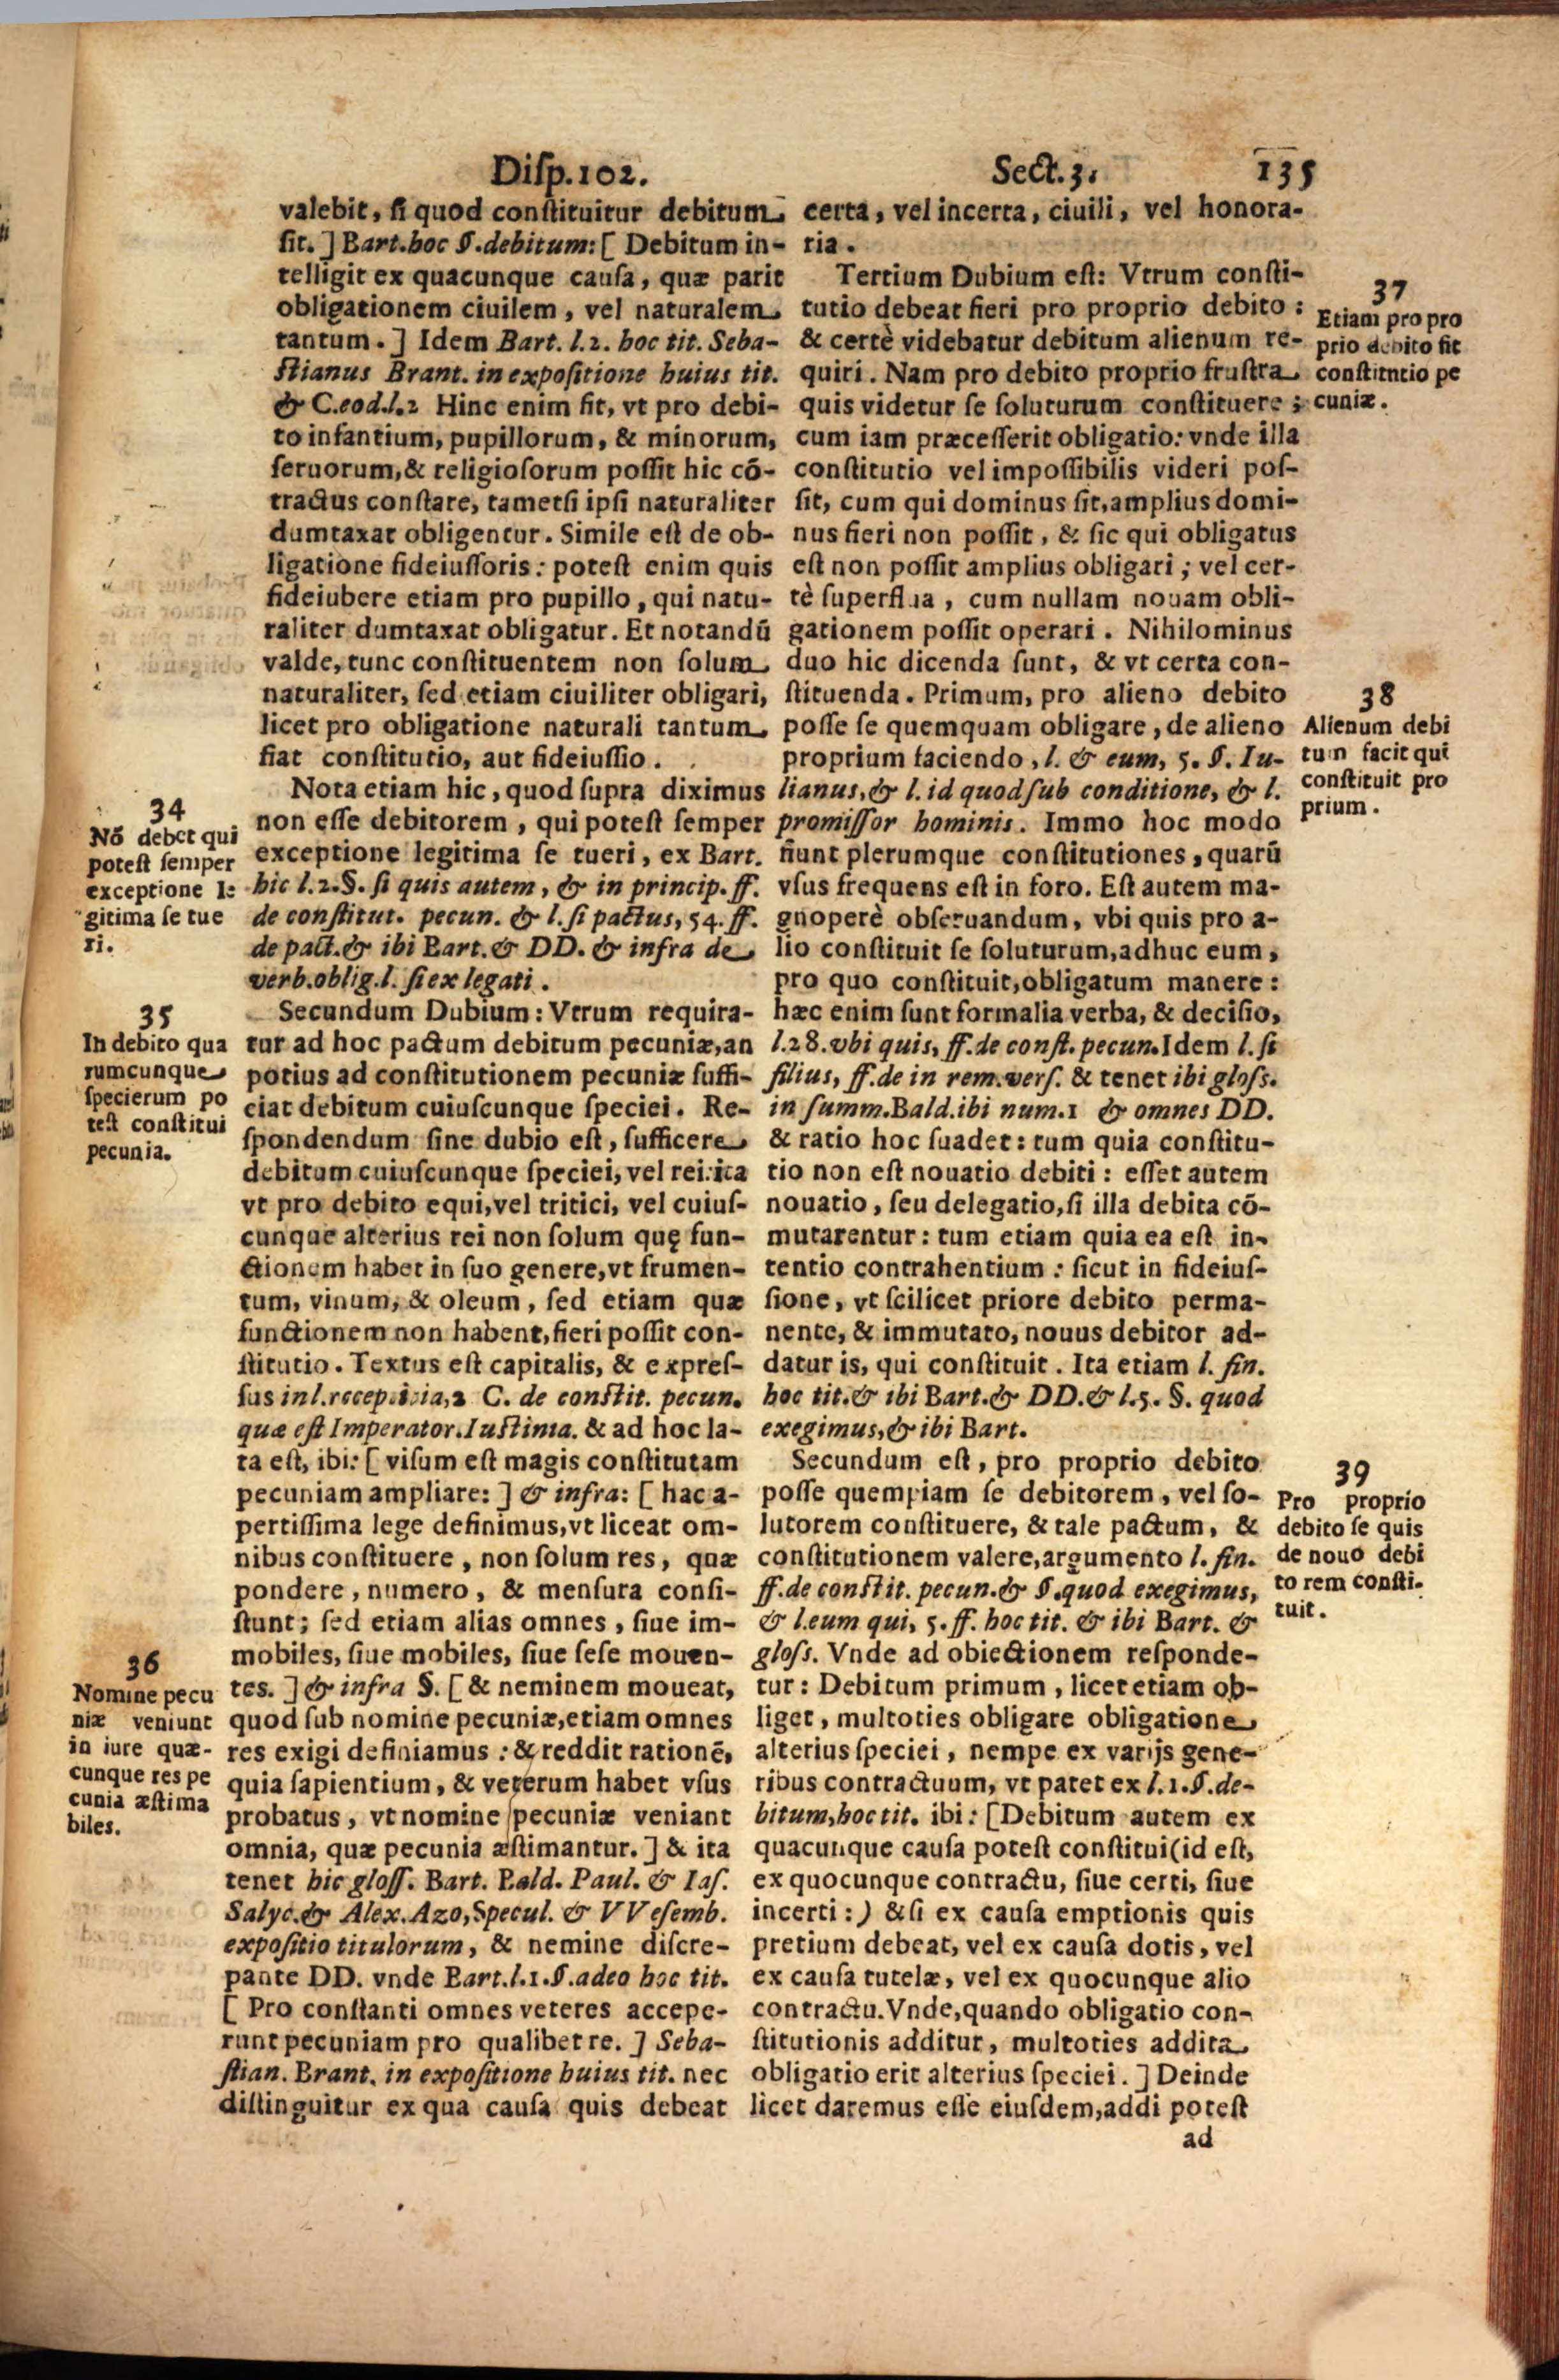 Disp.102. Sect.3. 135
valebit, ſi quod conſtituitur debitum
ſit. ] Bart.hoc §.debitum: [ Debitum in-
telligit ex quacunque cauſa, quæ parit
obligationem ciuilem, vel naturalem
tantum. ] Idem Bart. l.2. hoc tit. Seba-
ſtianus Brant. in expoſitione huius tit.
& C.eod.l.2 Hinc enim fit, vt pro debi-
to infantium, pupillorum, & minorum,
ſeruorum,& religioſorum poſſit hic cō-
tractus conſtare, tametſi ipſi naturaliter
dumtaxat obligentur. Simile eſt de ob-
ligatione fideiuſſoris: poteſt enim quis
fideiubere etiam pro pupillo, qui natu-
raliter dumtaxat obligatur. Et notandū
valde, tunc conſtituentem non ſolum
naturaliter, ſed etiam ciuiliter obligari,
licet pro obligatione naturali tantum
fiat conſtitutio, aut fideiuſſio.
Nota etiam hic, quod ſupra diximus
non eſſe debitorem, qui poteſt ſemper
exceptione legitima ſe tueri, ex Bart.
hic l.2.§. ſi quis autem, & in princip. ff.
de conſtitut. pecun. & l. ſi pactus, 54. ff.
de pact.& ibi Bart.& DD. & infra de
verb.oblig.l. ſi ex legati.
Secundum Dubium: Vtrum requira-
tur ad hoc pactum debitum pecuniæ,an
potius ad conſtitutionem pecuniæ ſuffi-
ciat debitum cuiuſcunque ſpeciei. Re-
ſpondendum ſine dubio eſt, ſufficere
debitum cuiuſcunque ſpeciei, vel rei: ita
vt pro debito equi,vel tritici, vel cuiuſ-
cunque alterius rei non ſolum quę fun-
ctionem habet in ſuo genere,vt frumen-
tum, vinum, & oleum, ſed etiam quæ
functionem non habent,fieri poſſit con-
ſtitutio. Textus eſt capitalis, & expreſ-
ſus in l.receptitia,2 C. de conſtit. pecun.
quæ eſt Imperator.Iuſtinia. & ad hoc la-
ta eſt, ibi: [ viſum eſt magis conſtitutam
pecuniam ampliare: ] & infra: [ hac a-
pertiſſima lege definimus,vt liceat om-
nibus conſtituere, non ſolum res, quæ
pondere, numero, & menſura conſi-
ſtunt; ſed etiam alias omnes, ſiue im-
mobiles, ſiue mobiles, ſiue ſeſe mouen-
tes. ] & infra §. [ & neminem moueat,
quod ſub nomine pecuniæ,etiam omnes
res exigi definiamus: & reddit rationē,
quia ſapientium, & veterum habet vſus
probatus, vt nomine pecuniæ veniant
omnia, quæ pecunia æſtimantur. ] & ita
tenet hic gloſſ. Bart. Bald. Paul. & Iaſ.
Salyc.& Alex. Azo,Specul. & VVeſemb.
expoſitio titulorum, & nemine diſcre-
pante DD. vnde Bart.l.1.§.adeo hoc tit.
[ Pro conſtanti omnes veteres accepe-
runt pecuniam pro qualibet re. ] Seba-
ſtian. Brant. in expoſitione huius tit. nec
diſtinguitur ex qua cauſa quis debeat
34
Nō debet qui
poteſt ſemper
exceptione le
gitima ſe tue
ri.
35
In debito qua
rumcunque
ſpecierum po
teſt conſtitui
pecunia.
36
Nomine pecu
niæ veniunt
in iure quæ-
cunque res pe
cunia æſtima
biles.
certa, vel incerta, ciuili, vel honora-
ria.
Tertium Dubium eſt: Vtrum conſti-
tutio debeat fieri pro proprio debito:
& certè videbatur debitum alienum re-
quiri. Nam pro debito proprio fruſtra
quis videtur ſe ſoluturum conſtituere;
cum iam præceſſerit obligatio: vnde illa
conſtitutio vel impoſſibilis videri poſ-
ſit, cum qui dominus ſit,amplius domi-
nus fieri non poſſit, & ſic qui obligatus
eſt non poſſit amplius obligari; vel cer-
tè ſuperflua, cum nullam nouam obli-
gationem poſſit operari. Nihilominus
duo hic dicenda ſunt, & vt certa con-
ſtituenda. Primum, pro alieno debito
poſſe ſe quemquam obligare, de alieno
proprium faciendo, l. & eum, 5. §. Iu-
lianus,& l. id quod ſub conditione, & l.
promiſſor hominis. Immo hoc modo
fiunt plerumque conſtitutiones, quarū
vſus frequens eſt in foro. Eſt autem ma-
gnoperè obſeruandum, vbi quis pro a-
lio conſtituit ſe ſoluturum,adhuc eum,
pro quo conſtituit,obligatum manere:
hæc enim ſunt formalia verba, & deciſio,
l.28.vbi quis, ff.de conſt. pecun.Idem l. ſi
filius, ff.de in rem.verſ. & tenet ibi gloſs.
in ſumm.Bald.ibi num.1 & omnes DD.
& ratio hoc ſuadet: tum quia conſtitu-
tio non eſt nouatio debiti: eſſet autem
nouatio, ſeu delegatio,ſi illa debita cō-
mutarentur: tum etiam quia ea eſt in-
tentio contrahentium: ſicut in fideiuſ-
ſione, vt ſcilicet priore debito perma-
nente, & immutato, nouus debitor ad-
datur is, qui conſtituit. Ita etiam l. fin.
hoc tit.& ibi Bart.& DD.& l.5. §. quod
exegimus,& ibi Bart.
Secundum eſt, pro proprio debito
poſſe quempiam ſe debitorem, vel ſo-
lutorem conſtituere, & tale pactum, &
conſtitutionem valere,argumento l. fin.
ff.de conſtit. pecun.& §.quod exegimus,
& l.eum qui, 5. ff. hoc tit. & ibi Bart. &
gloſs. Vnde ad obiectionem reſponde-
tur: Debitum primum, licet etiam ob-
liget, multoties obligare obligatione
alterius ſpeciei, nempe ex varijs gene-
ribus contractuum, vt patet ex l.1.§.de-
bitum,hoc tit. ibi: [Debitum autem ex
quacunque cauſa poteſt conſtitui(id eſt,
ex quocunque contractu, ſiue certi, ſiue
incerti:) & ſi ex cauſa emptionis quis
pretium debeat, vel ex cauſa dotis, vel
ex cauſa tutelæ, vel ex quocunque alio
contractu.Vnde,quando obligatio con-
ſtitutionis additur, multoties addita
obligatio erit alterius ſpeciei. ] Deinde
licet daremus eſſe eiuſdem,addi poteſt
ad
37
Etiam pro pro
prio debito fit
conſtitutio pe
cuniæ.
38
Alienum debi
tum facit qui
conſtituit pro
prium.
39
Pro proprio
debito ſe quis
de nouo debi
to rem conſti-
tuit.